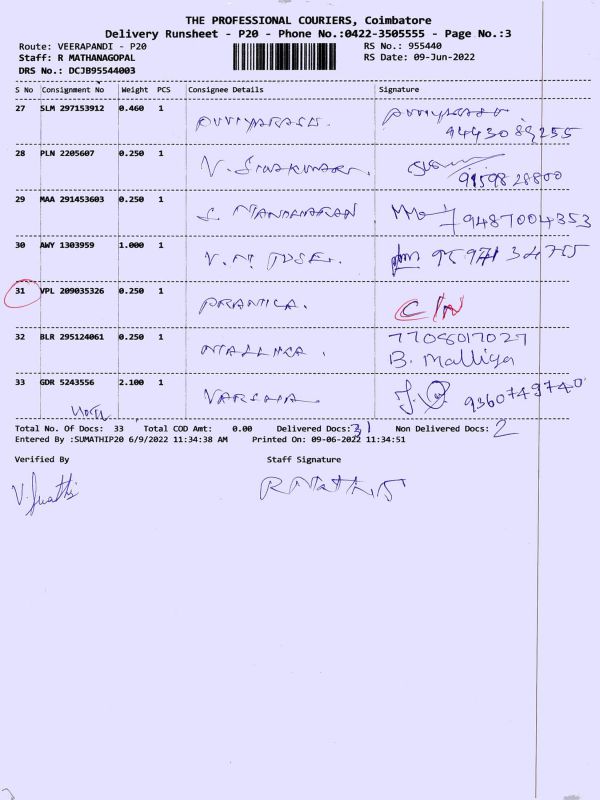 THE PROFESSIONAL COURIERS, Coimbatore
Delivery Runsheet - P20 - Phone No.:0422-3505555 - Page No.:3
Route: VEERAPANDI - P20 RS No.: 955440
Staff: R MATHANAGOPAL RS Date: 09-Jun-2022
DRS No.: DCJB95544003
S No Consignment No Weight PCS Consignee Details Signature
27 SLM 297153912 0.460 1
28 PLN 2205607 0.250 1 V. Sivakumar. 9159828800
29 MAA 291453603 0.250 1 9487004353
30 AWY 1303959 1.000 1
31 VPL 209035326 0.250 1 PRANTICA. C/N
32 BLR 295124061 0.250 1 MALLIKA. 7708017027
B. Malliga
33 GDR 5243556 2.100 1 VARSHA. 9360749740
Total No. Of Docs: 33 Total COD Amt: 0.00 Delivered Docs: 31 Non Delivered Docs: 2
Entered By :SUMATHIP20 6/9/2022 11:34:38 AM Printed On: 09-06-2022 11:34:51
Verified By Staff Signature